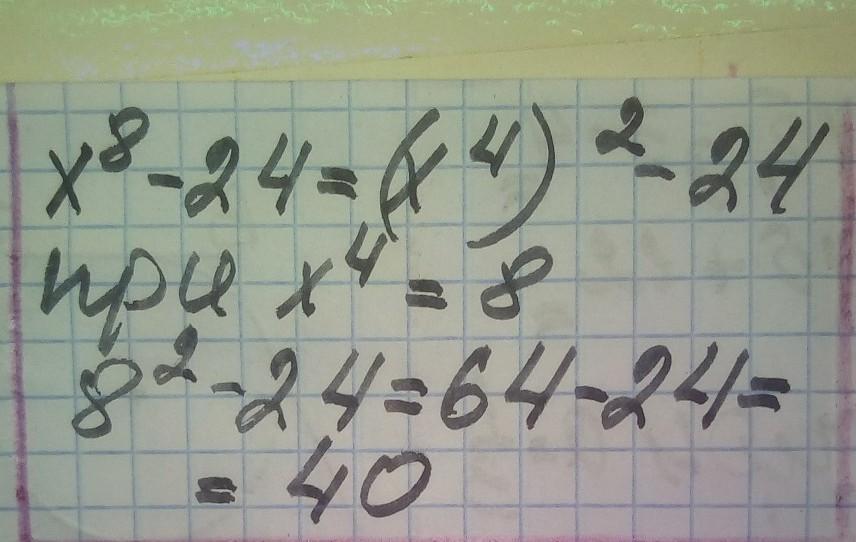 x⁸-24=(x⁴)²-24
при x⁴=8
8²-24=64-24=
=40